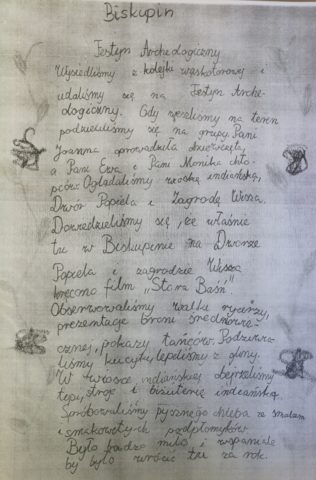 Biskupin
Festyn Archeologiczny
Wysiedliśmy z kolejki wąskotorowej i
udaliśmy się na Festyn Arche-
ologiczny. Gdy weszliśmy na teren
podzieliliśmy się na grupy. Pani
Joanna oprowadzała dziewczęta,
a Pani Ewa i Pani Monika chło-
pców. Oglądaliśmy wioskę indiańską,
Dwór Popiela i Zagrodę Wisza.
Dowiedzieliśmy się, że właśnie
tu w Biskupinie na Dworze
Popiela i zagrodzie Wisza
kręcono film "Stara Baśń"
Obserwowaliśmy walki rycerzy,
prezentacje broni średniowie-
cznej, pokazy tańców. Podziwia-
liśmy kucyki, lepiliśmy z gliny.
W wiosce indiańskiej obejrzeliśmy
tepi, stroje i biżuterię indiańską.
Spróbowaliśmy pysznego chleba ze smalcem
i smakowitych podpłomyków.
Było bardzo miło i wspaniale
by było wrócić tu za rok.